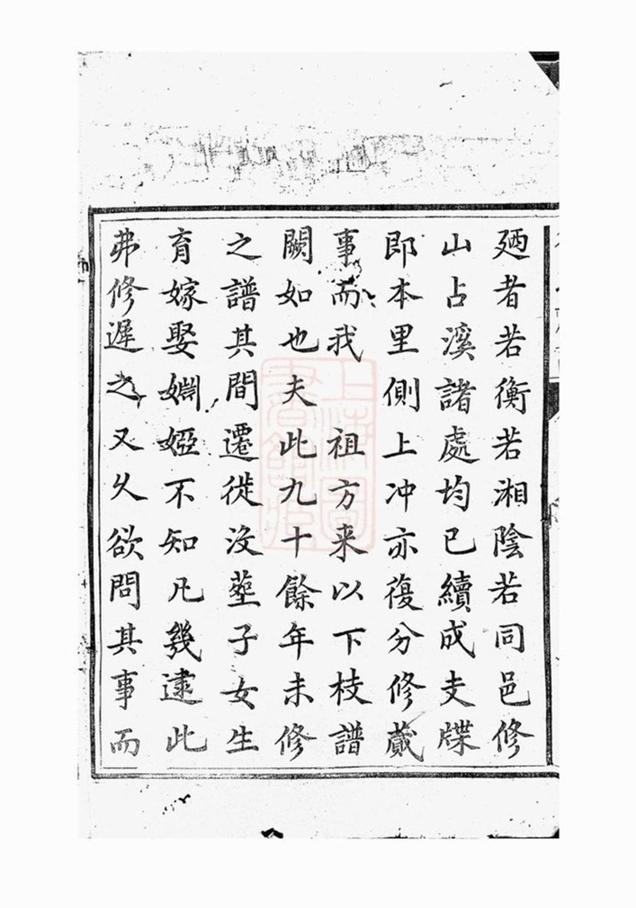 廼者若衡若湘陰若同邑修
山占溪諸處均已續成支牒
即本里側上冲亦復分修蕆
事而我　祖方来以下枝譜
闕如也夫此九十餘年未修
之譜其間遷徙沒塟子女生
育嫁娶婣婭不知凡幾逮此
弗修遲之又久欲問其事而
上海圖書館藏